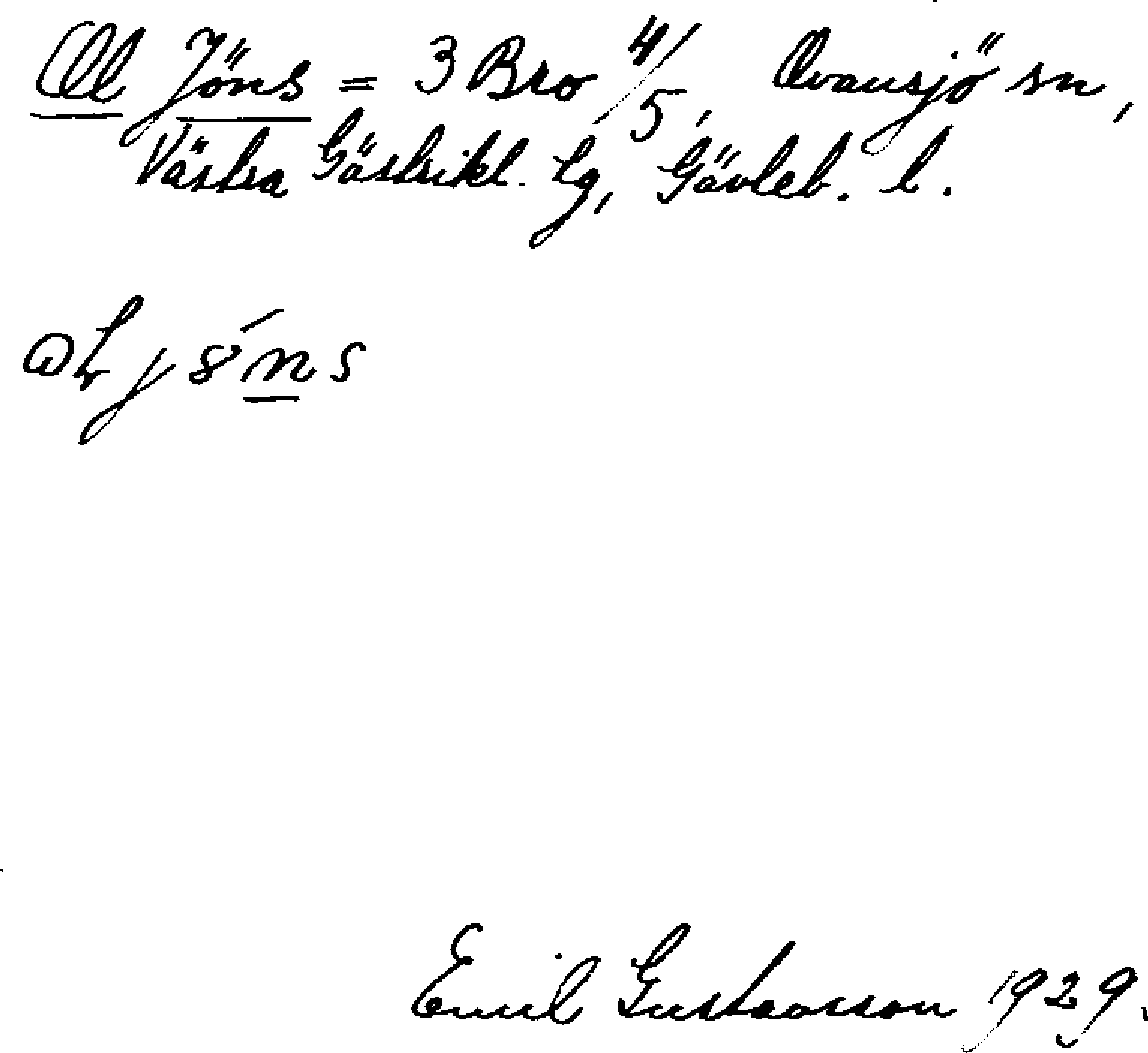 Ol Jöns = 3 Bro 4/5, Ovansjö sn,
Västra Gästrikl. tg, Gävleb. l.
Emil Gustavsson 1929.